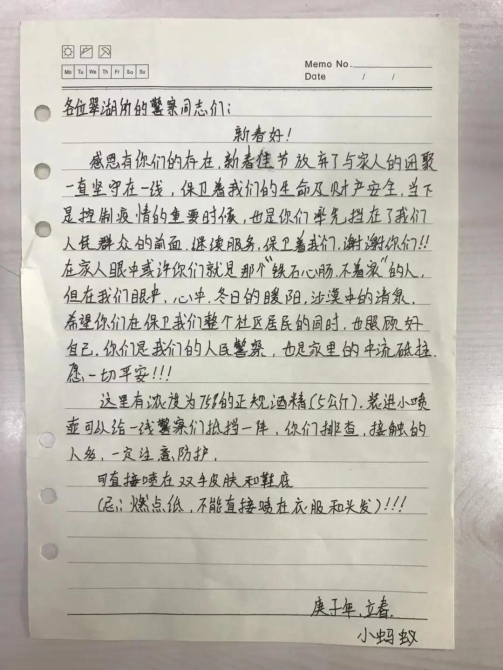 Memo No.
Mo Tu We Th Fr Sa Su
Date / /
各位翠湖所的警察同志们:
新春好!
感恩有你们的存在,新春佳节放弃了与家人的团聚
一直坚守在一线,保卫着我们的生命及财产安全,当下
是控制疫情的重要时候,也是你们率先挡在了我们
人民群众的前面,继续服务,保卫着我们,谢谢你们!!
在家人眼中或许你们就是那个“铁石心肠,不着家”的人,
但在我们眼中,心中,冬日的暖阳,沙漠中的清泉,
希望你们在保卫我们整个社区居民的同时,也照顾好
自己,你们是我们的人民警察,也是家里的中流砥柱,
愿一切平安!!!
这里有浓度为75%的正规酒精(5公斤),装进小喷
壶可以给一线警察们抵挡一阵,你们排查,接触的
人多,一定注意防护,
可直接喷在双手皮肤和鞋底
(忌:燃点低,不能直接喷在衣服和头发)!!!
庚子年,立春,
小蚂蚁